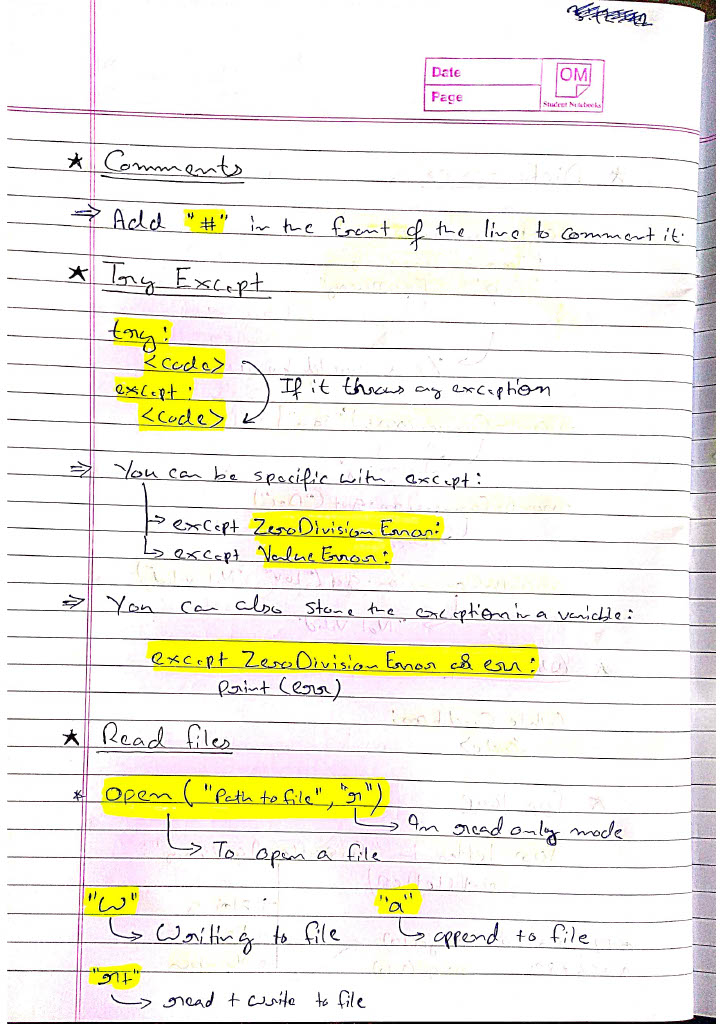 Date
OM
Page
Student Notebooks
★ Comments
⇒ Add "#" in the front of the line to comment it.
★ Try Except
try:
<code>
except:
<code>
If it throws any exception
⇒ You can be specific with except:
→ except ZeroDivision Error:
→ except Value Error:
⇒ You can also store the exception in a variable:
except ZeroDivision Error as err:
print (err)
★ Read files
* open ("Path to file", "r")
→ In read only mode
→ To open a file
"w" "a"
→ Writing to file → append to file
"r+"
→ read + write to file